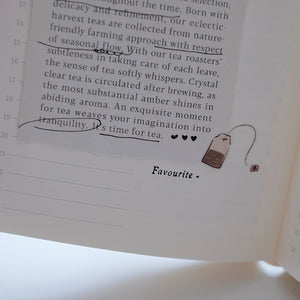 throughout the time. Born with
delicacy and refinement, our eclectic
harvest teas are collected from nature-
friendly farming approach with respect
of seasonal flow. With our tea roasters'
subtleness in taking care of each leave,
the sense of tea softly whispers. Crystal
clear tea is circulated after brewing, as
the most substantial amber shines in
abiding aroma. An exquisite moment
for tea weaves your imagination into
tranquility. It's time for tea.
Favourite -
13
14
15
16
17
18
19
20
21
22